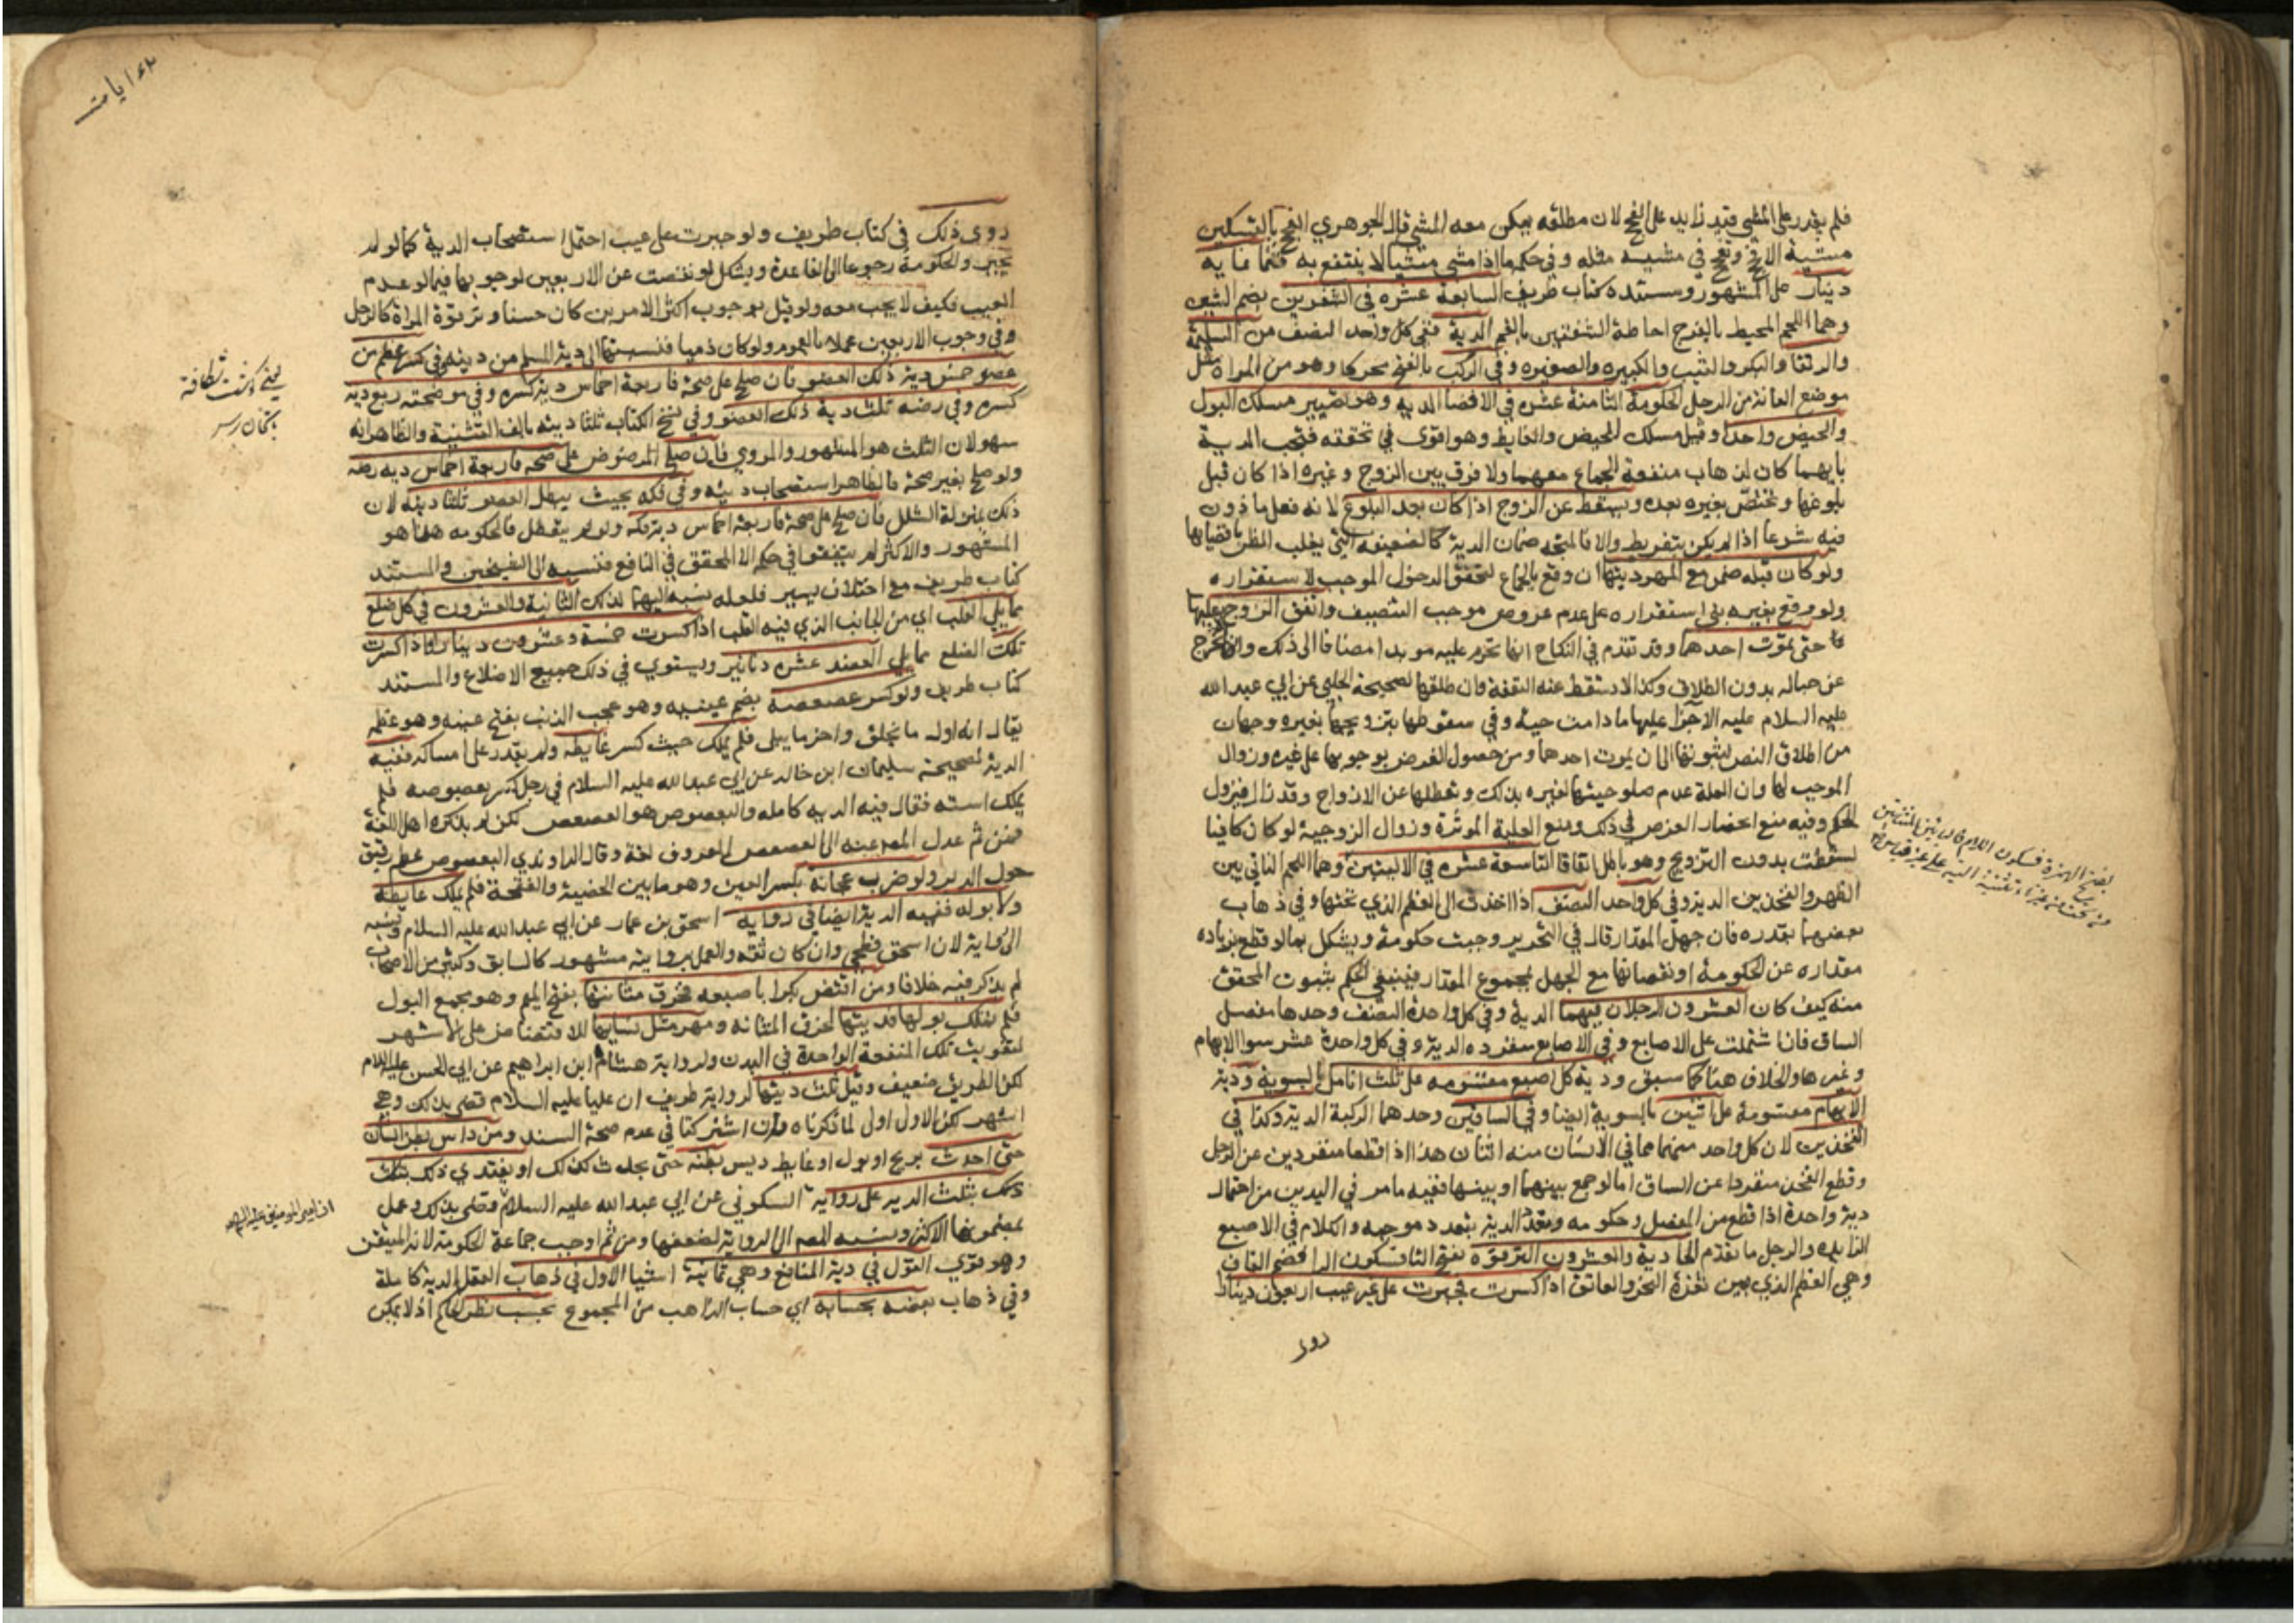 فلم يقدر على المشي قيد زايد على الفحج لان مطلقه يمكن معه المشي قال الجوهري الفحج بالتسكين
مشية الافحج وتفحج في مشيه مثله وفي حكمه اذا مشى مشيا لا ينتفع به فثمانمايه
دينار على المشهور ومستنده كتاب ظريف السابعة عشره في الشفرين بضم الشين
وهما اللحم المحيط بالفرج احاطة الشفتين بالفم الدية ففي كل واحد النصف من السليمة
والرتقا والبكر والثيب والكبيره والصغيره وفي الركب بالفتح محركا وهو من المراة مثل
موضع العانة من الرجل الحكومة الثامنة عشره في الافضا الديه وهو تصيير مسلك البول
والحيض واحدا وقيل مسلك الحيض والغايط وهو اقوى في تحققه فتجب الدية
بايهما كان لذهاب منفعة الجماع معهما ولا فرق بين الزوج وغيره اذا كان قبل
بلوغها وتختص بغيره بعده ويسقط عن الزوج اذا كان بعد البلوغ لانه فعل ماذون
فيه شرعا اذا لم يكن بتفريط والا فالمتجه ضمان الدية كالضعيفه التي يغلب الظن بافضايها
ولو كان قبله ضمن مع المهر ديتها ان وقع بالجماع لتحقق الدخول الموجب لاستقراره
ولو وقع بغيره بنى استقراره على عدم عروض موجب التنصيف وانفق الزوج عليها
حتى يموت احدهما وقد تقدم في النكاح انها تحرم عليه موبدا مضافا الى ذلك وان لم تخرج
عن حباله بدون الطلاق وكذا لا تسقط عنه النفقة وان طلقها لصحيحة الحلبي عن ابي عبد الله
عليه السلام عليه الاجرا عليها ما دامت حية وفي سقوطها بتزويجها بغيره وجهان
من اطلاق النص بثبوتها الى ان يموت احدهما ومن حصول الغرض بوجوبها على غيره وزوال
الموجب لها وان العلة عدم صلوحيتها لغيره بذلك وتعطلها عن الازواج وقد زال فيزول
الحكم وفيه منع انحصار الغرض في ذلك ومنع العلية الموثرة وزوال الزوجية لو كان كافيا
لسقطت بدون التزويج وهو باطل اتفاقا التاسعة عشره في الاليتين وهما اللحم الناتي بين
الظهر والفخذين الدية وفي كل واحد النصف اذا اخذت الى العظم الذي تحتها وفي ذهاب
بعضهما بقدره فان جهل المقدار قال في التحرير وجبت حكومة ويشكل بما لو قطع بزياده
مقداره عن الحكومة او نقصانها مع الجهل بمجموع المقدار فينبغي الحكم بثبوت المحقق
منه كيف كان العشرون الرجلان فيهما الدية وفي كل واحدة النصف وحدها مفصل
الساق فان اشتملت على الاصابع وفي الاصابع منفرده الدية وفي كل واحدة عشر سوا الابهام
وغيرها والخلاف هنا كما سبق ودية كل اصبع مقسومه على ثلث انامل بالسوية ودية
الابهام مقسومة على اثنين بالسوية ايضا وفي الساقين وحدهما الركبة الدية وكذا في
الفخذين لان كل واحد منهما مما في الانسان منه اثنان هذا اذا قطعا منفردين عن الرجل
وقطع الفخذ منفردا عن الساق اما لو جمع بينهما او بينها ففيه ما مر في اليدين من احتمال
دية واحدة اذا قطع من المفصل وحكومه وتعدد الدية بتعدد موجبه والكلام في الاصبع
الزايده والرجل ما تقدم الحادية والعشرون الترقوة بفتح التا فسكون الرا فضم القاف
وهي العظم الذي بين ثغرة النحر والعاتق اذا كسرت فجبرت على غير عيب اربعون دينارا
روى
بفتح الهمزة فسكون اللام
روى ذلك في كتاب ظريف ولو جبرت على عيب احتمل استصحاب الدية كما لو لم
تجبر والحكومة رجوعا الى القاعدة ويشكل لو نقصت عن الاربعين لوجوبها فيما لو عدم
العيب فكيف لا يجب معه ولو قيل بوجوب اكثر الامرين كان حسنا وترقوة المراة كالرجل
وفي وجوب الاربعين عملا بالعموم ولو كان ذميا فنسبتها الى دية المسلم من ديته وفي كسر عظم من
عضو خمس دية ذلك العضو فان صلح على صحة فاربعة اخماس دية كسره وفي موضحته ربع دية
كسره وفي رضه ثلث دية ذلك العضو وفي نسخ الكتاب ثلثا ديته بالف التثنية والظاهر انه
سهو لان الثلث هو المشهور والمروي فان صلح المرضوض على صحه فاربعة اخماس دية رضه
ولو صلح بغير صحة فالظاهر استصحاب ديته وفي فكه بحيث يبطل العضو ثلثا ديته لان
ذلك بمنزلة الشلل فان صلح على صحة فاربعة اخماس دية فكه ولو لم يتعطل فالحكومه هذا هو
المشهور والاكثر لم يتفقوا في حكم الا المحقق في النافع فنسبه الى الشيخين والمستند
كتاب ظريف مع اختلاف يسير فلعله نسبه اليهما لذلك الثانية والعشرون في كل ضلع
مما يلي القلب اي من الجانب الذي فيه القلب اذا كسرت خمسة وعشرون دينارا واذا كسرت
تلك الضلع مما يلي العضد عشره دنانير ويستوي في ذلك جميع الاضلاع والمستند
كتاب ظريف ولو كسر عصعصه بضم عينيه وهو عجب الذنب بفتح عينه وهو عظم
يقال انه اول ما يخلق واخر ما يبلى فلم يملك حيث كسر غايطه ولم يقدر على امساكه ففيه
الدية لصحيحة سليمان ابن خالد عن ابي عبد الله عليه السلام في رجل كسر بعصوصه فلم
يملك استه فقال فيه الديه كامله والبعصوص هو العصعص لكن لم يذكره اهل اللغة
فمن ثم عدل المص عنه الى العصعص المعروف لغة وقال الراوندي البعصوص عظم رقيق
حول الدبر ولو ضرب عجانه بكسر العين وهو ما بين الخصية والفقحة فلم يملك غايطه
ولا بوله ففيه الدية ايضا في رواية اسحق بن عمار عن ابي عبد الله عليه السلام ونسبه
الى الرواية لان اسحق فطحي وان كان ثقه والعمل بروايته مشهور كالسابق وكثير من الاصحاب
لم يذكر فيه خلافا ومن افتض بكرا باصبعه فخرق مثانتها بفتح الميم وهو مجمع البول
فلم تملك بولها فديتها لخرق المثانه ومهر مثل نسايها للافتضاض على الاشهر
لتفويت تلك المنفعة الواحدة في البدن ولرواية هشام ابن ابراهيم عن ابي الحسن عليه السلام
لكن الطريق ضعيف وقيل ثلث ديتها لرواية ظريف ان عليا عليه السلام قضى بذلك وهي
اشهر لكن الاول اولى لما ذكرناه وان اشتركتا في عدم صحة السند ومن داس بطن انسان
حتى احدث بريح او بول او غايط ديس بطنه حتى يحدث كذلك او يفتدي ذلك بثلث
بثلث الدية على رواية السكوني عن ابي عبد الله عليه السلام وقضى بذلك وعمل
بمضمونها الاكثر ونسبه المص الى الرواية لضعفها ومن ثم اوجب جماعة الحكومة لانه المتيقن
وهو قوي القول في دية المنافع وهي ثمانية اشيا الاول في ذهاب العقل الدية كاملة
وفي ذهاب بعضه بحسابه اي حساب الذاهب من المجموع بحسب نظر الحاكم اذ لا يمكن
ان امير المومنين عليه السلام